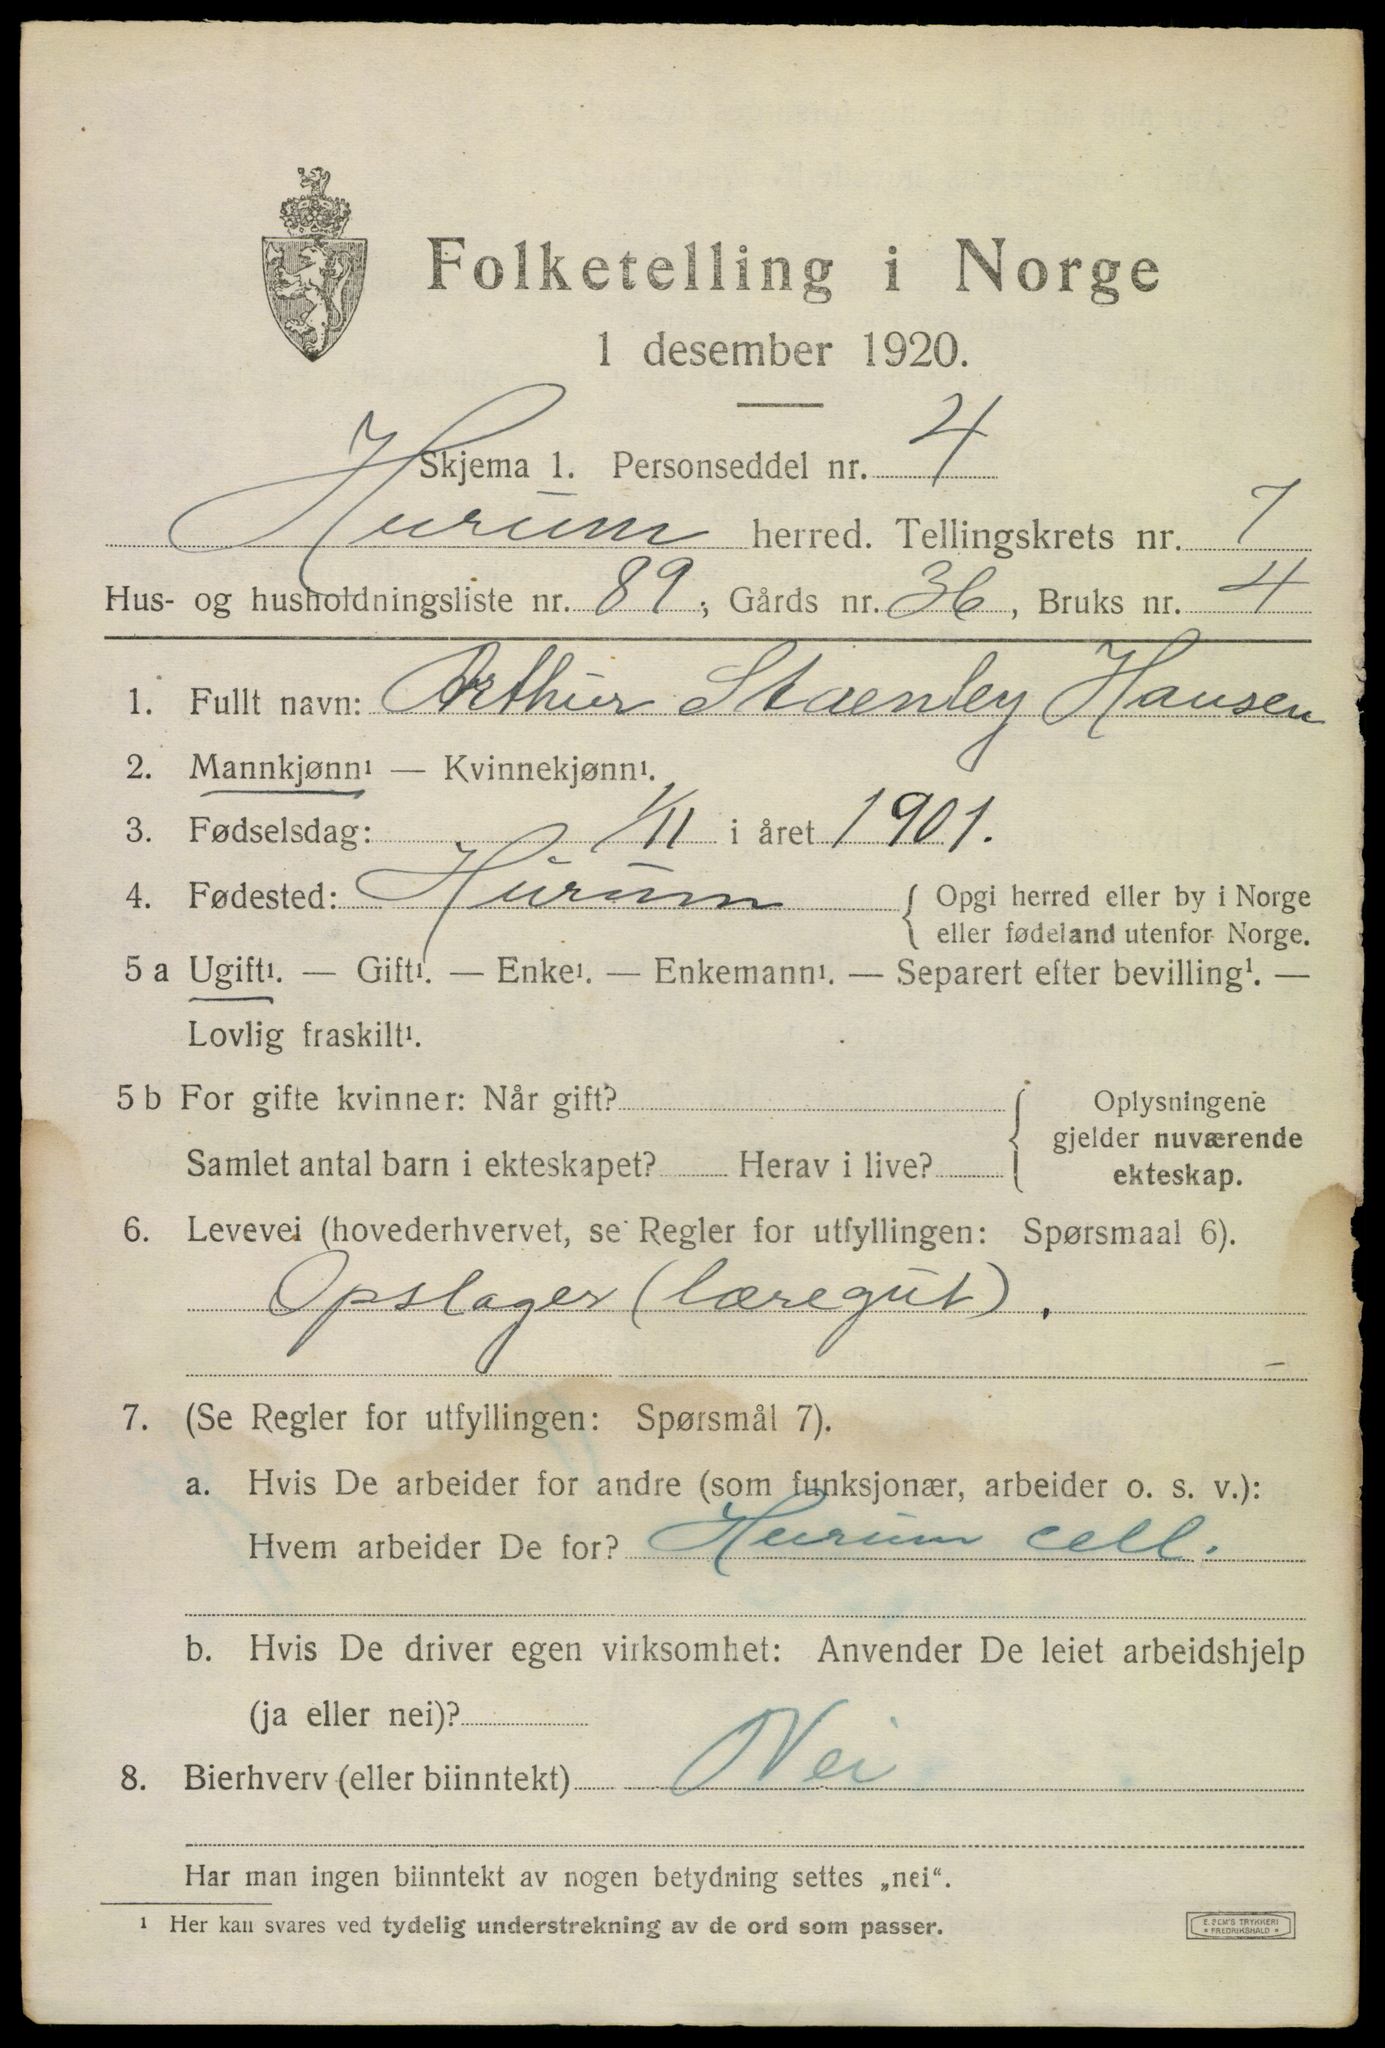 Folketelling i Norge
1 desember 1920.
Skjema 1. Personseddel nr. 4
Hurum herred. Tellingskrets nr. 7
Hus- og husholdningsliste nr. 89, Gårds nr. 36, Bruks nr. 4
1. Fullt navn: Arthur Staenley Hansen
2. Mannkjønn¹ — Kvinnekjønn¹.
3. Fødselsdag: 1/11 i året 1901.
4. Fødested: Hurum { Opgi herred eller by i Norge
eller fødeland utenfor Norge.
5 a Ugift¹. — Gift¹. — Enke¹. — Enkemann¹. — Separert efter bevilling¹. —
Lovlig fraskilt¹.
5 b For gifte kvinner: Når gift?
Samlet antal barn i ekteskapet? Herav i live?
{ Oplysningene
gjelder nuværende
ekteskap.
6. Levevei (hovederhvervet, se Regler for utfyllingen: Spørsmaal 6).
Opslager (læregut).
7. (Se Regler for utfyllingen: Spørsmål 7).
a. Hvis De arbeider for andre (som funksjonær, arbeider o. s. v.):
Hvem arbeider De for? Hurum cell.
b. Hvis De driver egen virksomhet: Anvender De leiet arbeidshjelp
(ja eller nei)?
8. Bierhverv (eller biinntekt) Nei
Har man ingen biinntekt av nogen betydning settes „nei“.
¹ Her kan svares ved tydelig understrekning av de ord som passer.
E. SEM'S TRYKKERI
* FREDRIKSHALD *